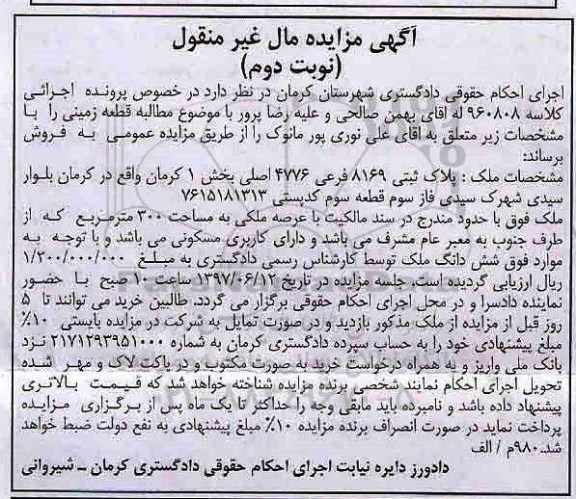 آگهی مزایده مال غیر منقول
(نوبت دوم)
اجرای احکام حقوقی دادگستری شهرستان کرمان در نظر دارد در خصوص پرونده اجرائی
کلاسه ۹۶۰۸۰۸ له آقای بهمن صالحی و علیه رضا پرور با موضوع مطالبه قطعه زمینی را با
مشخصات زیر متعلق به آقای علی نوری پور مانوک را از طریق مزایده عمومی به فروش
برساند:
مشخصات ملک : پلاک ثبتی ۸۱۶۹ فرعی ۴۷۷۶ اصلی بخش ۱ کرمان واقع در کرمان بلوار
سیدی شهرک سیدی فاز سوم قطعه سوم کدپستی ۷۶۱۵۱۸۱۳۱۳
ملک فوق با حدود مندرج در سند مالکیت با عرصه ملکی به مساحت ۳۰۰ مترمربع که از
طرف جنوب به معبر عام مشرف می باشد و دارای کاربری مسکونی می باشد و با توجه به
موارد فوق شش دانگ ملک توسط کارشناس رسمی دادگستری به مبلغ ۱/۲۰۰/۰۰۰/۰۰۰
ریال ارزیابی گردیده است. جلسه مزایده در تاریخ ۱۳۹۷/۰۶/۱۲ ساعت ۱۰ صبح با حضور
نماینده دادسرا و در محل اجرای احکام حقوقی برگزار می گردد. طالبین خرید می توانند تا ۵
روز قبل از مزایده از ملک مذکور بازدید و در صورت تمایل به شرکت در مزایده بایستی ۱۰٪
مبلغ پیشنهادی خود را به حساب سپرده دادگستری کرمان به شماره ۲۱۷۱۲۹۳۹۵۱۰۰۰ نزد
بانک ملی واریز و به همراه درخواست خرید به صورت مکتوب و در پاکت لاک و مهر شده
تحویل اجرای احکام نمایند شخصی برنده مزایده شناخته خواهد شد که قیمت بالاتری
پیشنهاد داده باشد و نامبرده باید مابقی وجه را حداکثر تا یک ماه پس از برگزاری مزایده
پرداخت نماید در صورت انصراف برنده مزایده ۱۰٪ مبلغ پیشنهادی به نفع دولت ضبط خواهد
شد.۹۸۰م / الف
دادورز دایره نیابت اجرای احکام حقوقی دادگستری کرمان ـ شیروانی